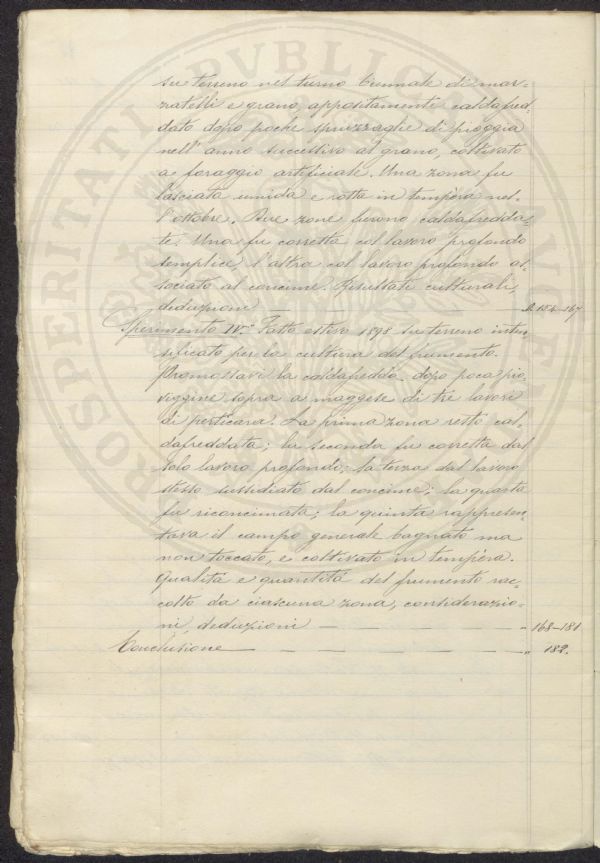 su terreno nel turno biennale di mar-
zatelli e grano, appositamente caldafred-
dato dopo poche spruzzaglie di pioggia
nell'anno successivo al grano, coltivato
a foraggio artificiale. Una zona fu
lasciata umida e rotta in tempèra nel-
l'ottobre. Due zone furono caldafredda-
te. Una fu corretta col lavoro profondo
semplice, l'altra col lavoro profondo as-
sociato al concime. Resultati culturali,
deduzioni 154-167
Sperimento IV° Fatto estivo 1898 su terreno inten-
sificato per la cultura del frumento.
Promossavi la caldafredda dopo poca pio-
viggine sopra a maggese di tre lavori
di perticara. La prima zona restò cal-
dafreddata; la seconda fu corretta dal
solo lavoro profondo; la terza dal lavoro
stesso sussidiato dal concime; la quarta
fu riconcimata; la quinta rappresen-
tava il campo generale bagnato ma
non toccato, e coltivato in tempèra.
Qualità e quantità del frumento rac-
colto da ciascuna zona, considerazio-
ni, deduzioni — — — — " 168-181
Conclusione — — — — — " 182.
PROSPERITATI PVBLICAE